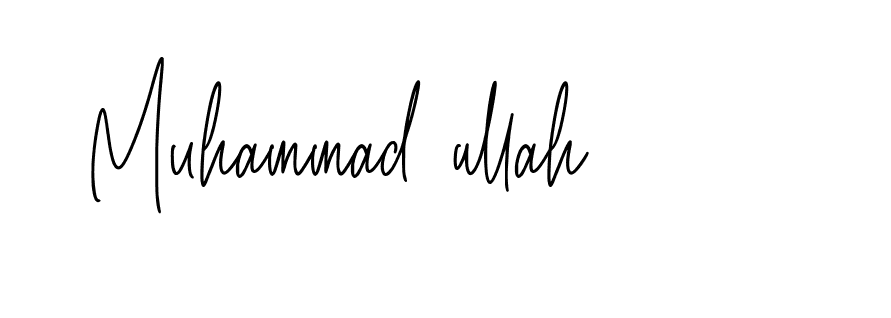 Muhammad ullah